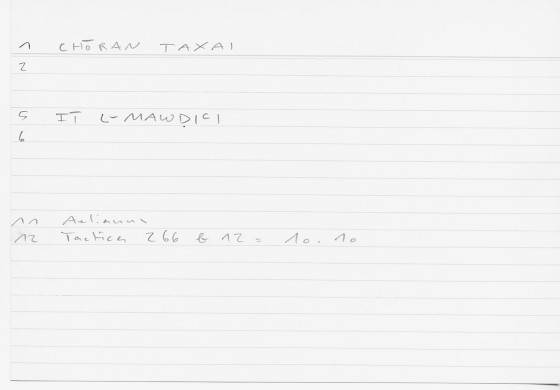 1 CHŌRAN TAXAI
2
5 IT L-MAWḌICI
6
11 Aelianus
12 Tactica 266 b 12 = 10.10